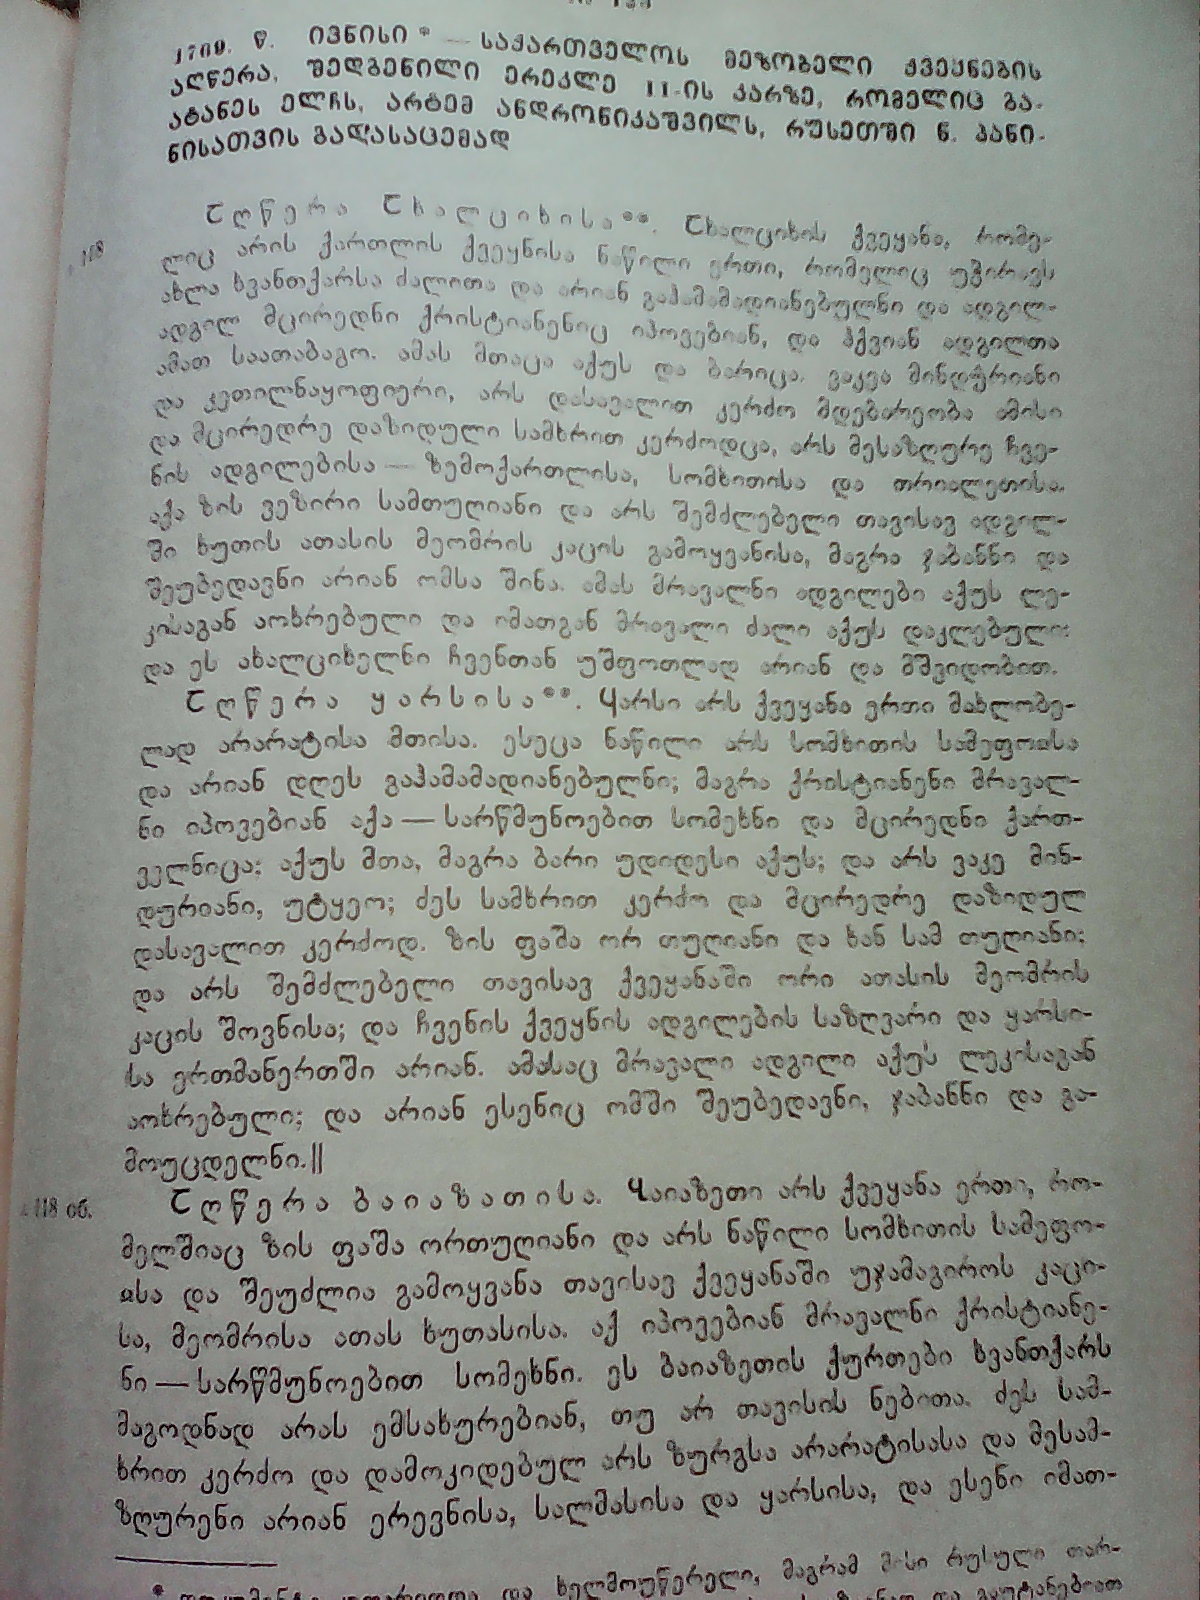 1769. წ. ივნისი * — საქართველოს მეზობელი ქვეყნების
აღწერა, შედგენილი ერეკლე II-ის კარზე, რომელიც გა-
ატანეს ელჩს, არტემ ანდრონიკაშვილს, რუსეთში ნ. პანი-
ნისათვის გადასაცემად
აღწერა ახალციხისა **. ახალციხის ქვეყანა, რომე-
118
ლიც არის ქართლის ქვეყნისა ნაწილი ერთი, რომელიც უჭირავს
ახლა ხვანთქარსა ძალითა და არიან გაჰამამადიანებულნი და ადგილ-
ადგილ მცირედნი ქრისტიანენიც იპოვებიან, და ჰქვიან ადგილთა
ამათ საათაბაგო. ამას მთაცა აქუს და ბარიცა. ვაკეა მინდურიანი
და კეთილნაყოფიერი, არს დასავალით კერძო მდებარეობა ამისი
და მცირედრე დაზიდული სამხრით კერძოდცა, არს მესაზღურე ჩვე-
ნის ადგილებისა — ზემოქართლისა, სომხითისა და თრიალეთისა.
აქა ზის ვეზირი სამთუღიანი და არს შემძლებელი თავისავ ადგილ-
ში ხუთის ათასის მეომრის კაცის გამოყვანისა, მაგრა ჯაბანნი და
შეუბედავნი არიან ომსა შინა. ამას მრავალნი ადგილები აქუს ლე-
კისაგან აოხრებული და იმათგან მრავალი ძალი აქუს დაკლებული:
და ეს ახალციხელნი ჩვენთან უშფოთლად არიან და მშვიდობით.
აღწერა ყარსისა **. ყარსი არს ქვეყანა ერთი მახლობე-
ლად არარატისა მთისა. ესეცა ნაწილი არს სომხითის სამეფოჲსა
და არიან დღეს გაჰამამადიანებულნი; მაგრა ქრისტიანენი მრავალ-
ნი იპოვებიან აქა — სარწმუნოებით სომეხნი და მცირედნი ქართ-
ველნიცა; აქუს მთა, მაგრა ბარი უდიდესი აქუს; და არს ვაკე მინ-
დურიანი, უტყეო; ძეს სამხრით კერძო და მცირედრე დაზიდულ
დასავალით კერძოდ. ზის ფაშა ორ თუღიანი და ხან სამ თუღიანი;
და არს შემძლებელი თავისავ ქვეყანაში ორი ათასის მეომრის
კაცის შოვნისა; და ჩვენის ქვეყნის ადგილების საზღვარი და ყარსი-
სა ერთმანერთში არიან. ამასაც მრავალი ადგილი აქუს ლეკისაგან
აოხრებული; და არიან ესენიც ომში შეუბედავნი, ჯაბანნი და გა-
მოუცდელნი.||
118 об.
აღწერა ბაიაზათისა. ბაიაზეთი არს ქვეყანა ერთი, რო-
მელშიაც ზის ფაშა ორთუღიანი და არს ნაწილი სომხითის სამეფო-
ჲსა და შეუძლია გამოყვანა თავისავ ქვეყანაში უჯამაგიროს კაცი-
სა, მეომრისა ათას ხუთასისა. აქ იპოვებიან მრავალნი ქრისტიანე-
ნი — სარწმუნოებით სომეხნი. ეს ბაიაზეთის ქურთები ხვანთქარს
მაგოდნად არას ემსახურებიან, თუ არ თავისის ნებითა. ძეს სამ-
ხრით კერძო და დამოკიდებულ არს ზურგსა არარატისასა და მესამ-
ზღურენი არიან ერევნისა, სალმასისა და ყარსისა, და ესენი იმათ-
* და ხელმოუწერელი, მაგრამ მისი რუსული თარ-
და გაუტანებიათ